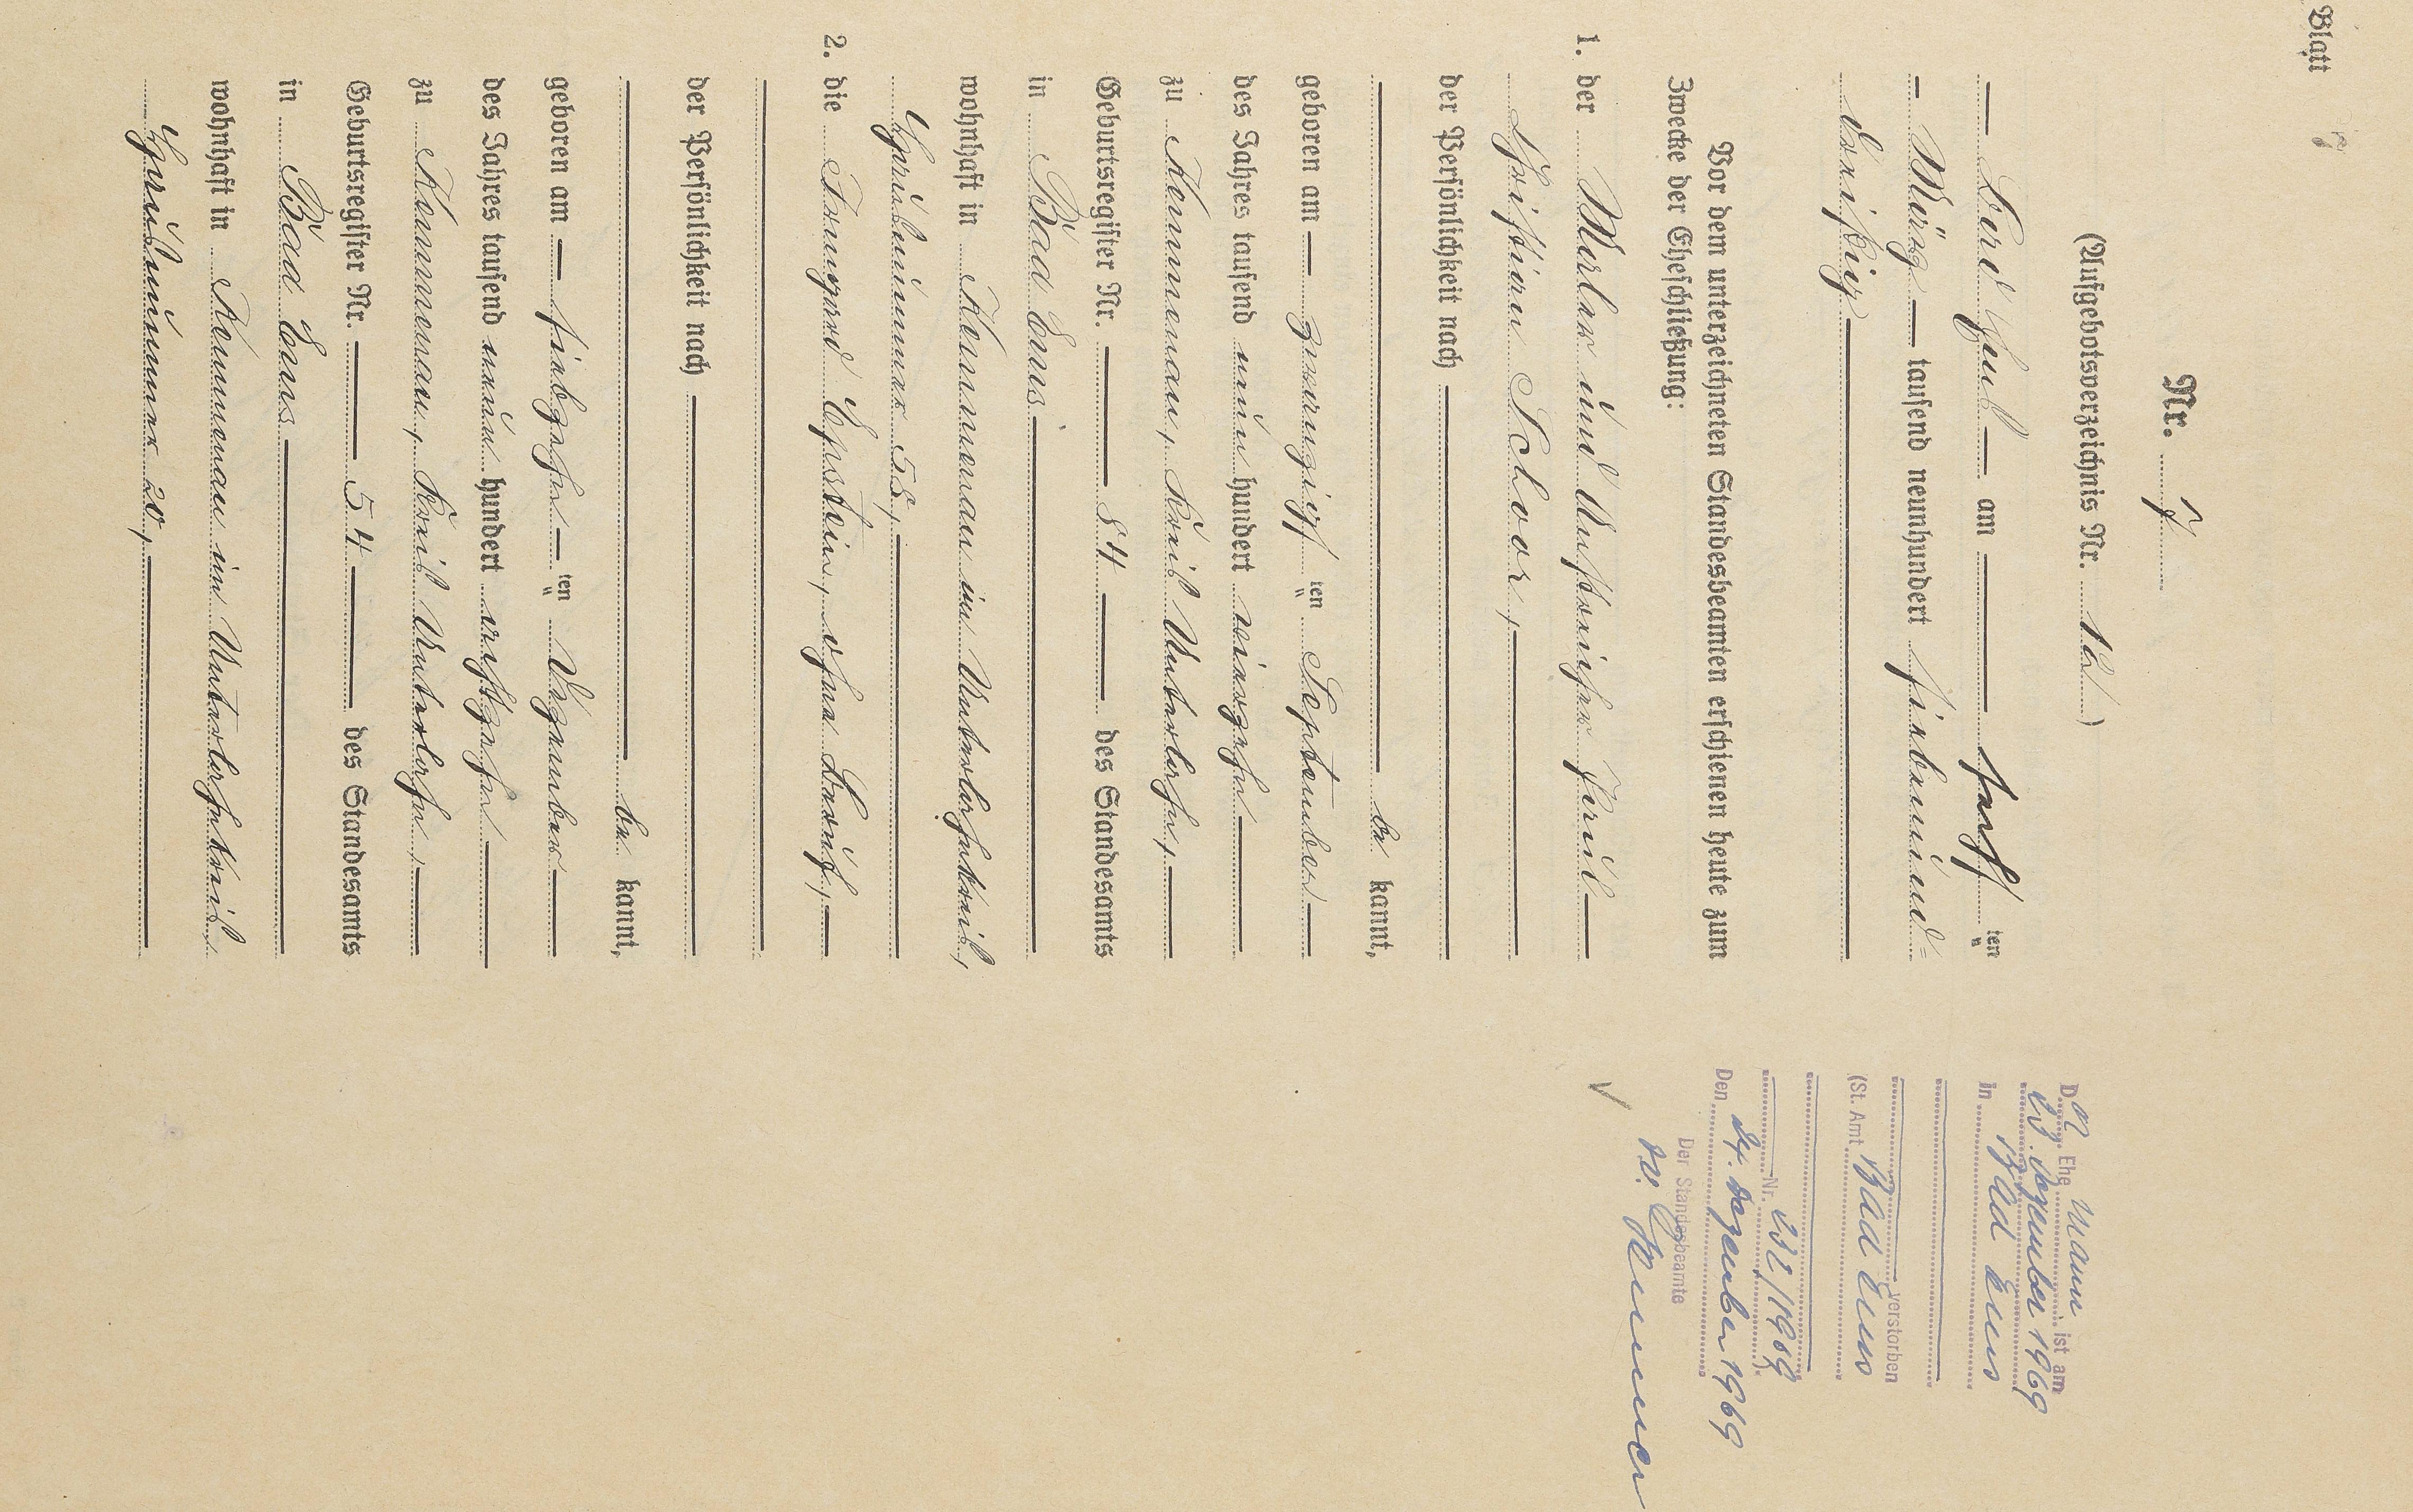 Blatt
Nr. 7
(Aufgebotsverzeichnis Nr. 12)
Bad Ems am sechs ten
März tausend neunhundert siebenund-
dreißig
Vor dem unterzeichneten Standesbeamten erschienen heute zum
Zwecke der Eheschließung:
1. der Maler und Anstreicher Emil
Christian Schor,
der Persönlichkeit nach
be kannt,
geboren am zwanzigsten September
des Jahres tausend neun hundert vierzehn
zu Kemmenau, Kreis Unterlahn,
Geburtsregister Nr. 84 des Standesamts
in Bad Ems
wohnhaft in Kemmenau im Unterlahnkreis,
Hausnummer 55,
2. die Irmgard Epstein, ohne Beruf,
der Persönlichkeit nach
be kannt,
geboren am siebzehn ten Dezember
des Jahres tausend neun hundert achtzehn
zu Kemmenau, Kreis Unterlahn,
Geburtsregister Nr. 54 des Standesamts
in Bad Ems
wohnhaft in Kemmenau im Unterlahnkreis,
Hausnummer 20,
Der Ehe Mann ist am
23. Dezember 1969
in Bad Ems
verstorben
(St. Amt Bad Ems
Nr. 232/1969)
Den 24. Dezember 1969
Der Standesbeamte